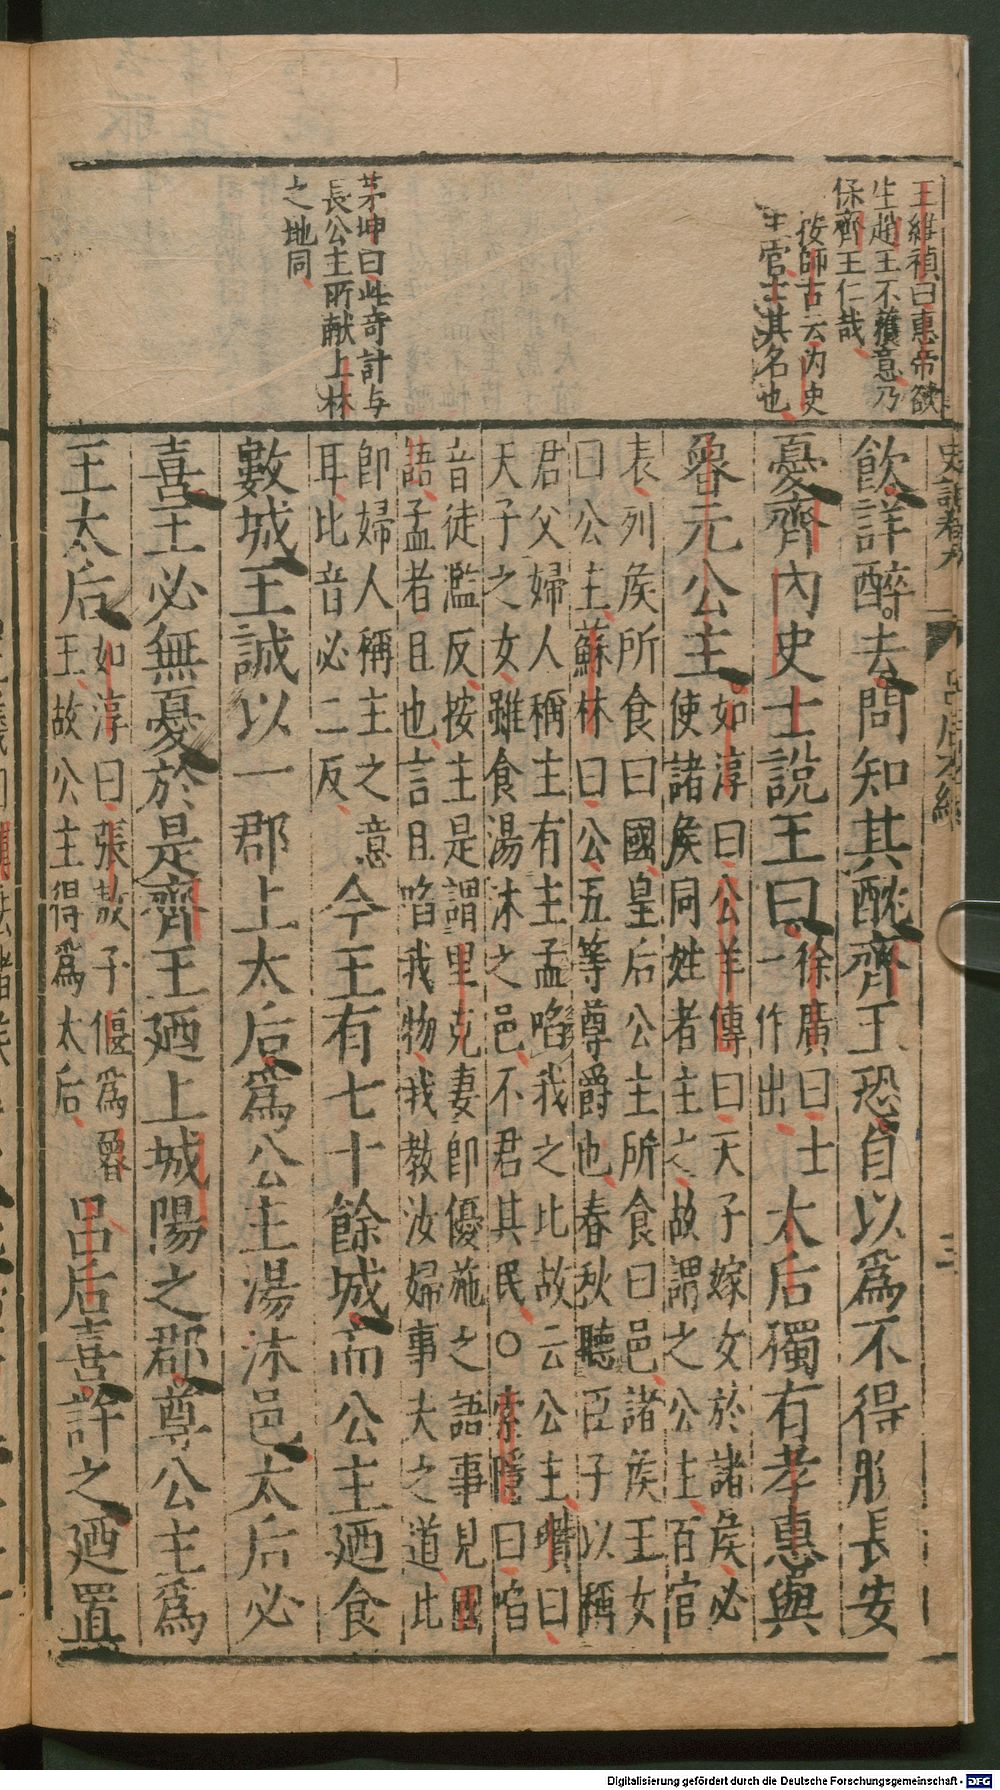 王維禎曰惠帝欲
生趙王不獲意乃
保齊王仁哉
按師古云內史
王官士其名也
茅坤曰此奇計与
長公主所献上林
之地同
史記卷九
呂后本紀
三
飲詳醉去問知其酖齊王恐自以爲不得脫長安
憂齊內史士說王曰
徐廣曰士
一作出
太后獨有孝惠與
魯元公主
如淳曰公羊傳曰天子嫁女於諸侯必
使諸侯同姓者主之故謂之公主百官
表列侯所食曰國皇后公主所食曰邑諸侯王女
曰公主蘇林曰公五等尊爵也春秋聽臣子以稱
君父婦人稱主有主孟啗我之比故云公主瓚曰
天子之女雖食湯沐之邑不君其民○索隱曰啗
音徒濫反按主是謂里克妻即優施之語事見國
語孟者且也言且啗我物我教汝婦事夫之道此
即婦人稱主之意
耳比音必二反
今王有七十餘城而公主廼食
數城王誠以一郡上太后爲公主湯沐邑太后必
喜王必無憂於是齊王廼上城陽之郡尊公主爲
王太后
如淳曰張敖子偃爲魯
王故公主得爲太后
呂后喜許之廼置
Digitalisierung gefördert durch die Deutsche Forschungsgemeinschaft - DFG